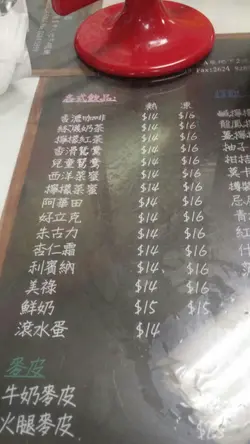 各式飲品: 熱 凍
香濃咖啡 $14 $16
絲襪奶茶 $14 $16
檸檬紅茶 $14 $16
香滑鴛鴦 $14 $16
兒童鴛鴦 $14 $16
西洋菜蜜 $14 $16
檸檬菜蜜 $14 $16
阿華田 $14 $16
好立克 $14 $16
朱古力 $14 $16
杏仁霜 $14 $16
利賓納 $14 $16
美祿 $14 $16
鮮奶 $15 $15
滾水蛋 $14
麥皮
牛奶麥皮
火腿麥皮